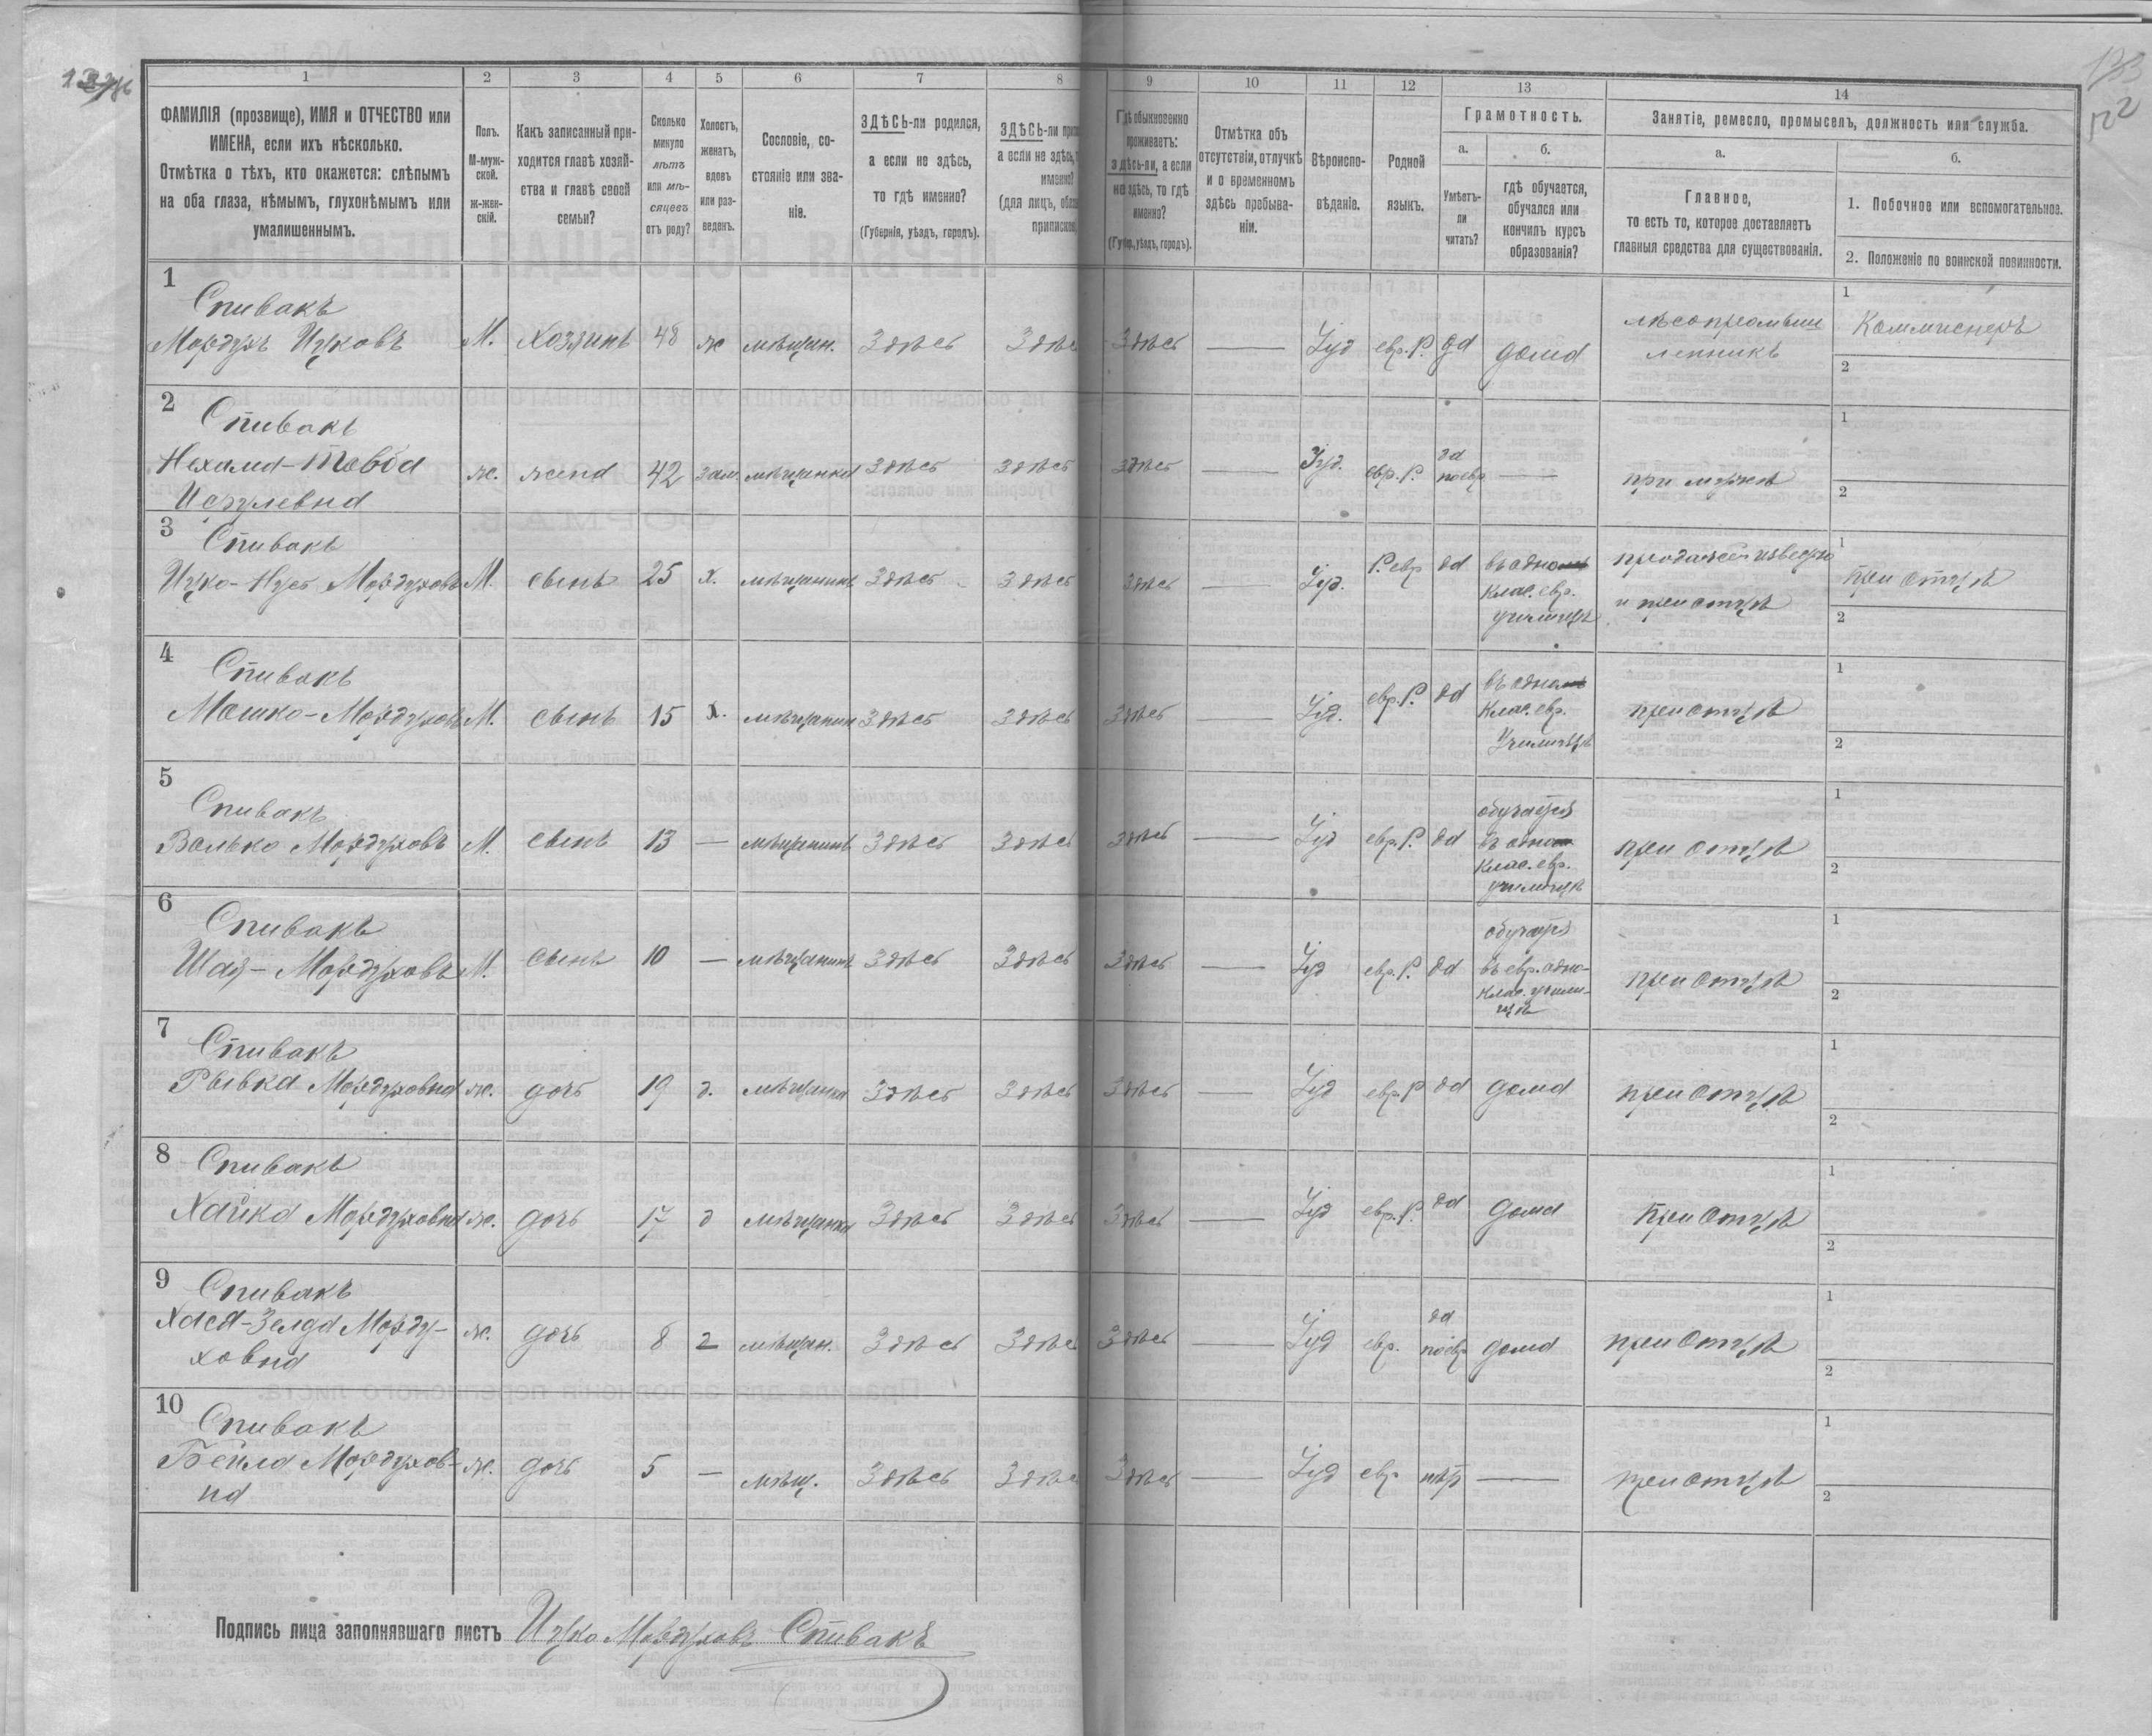 133
122
1 2 3 4 5 6 7 8 9 10 11 12 13 14
ФАМИЛІЯ (прозвище), ИМЯ и ОТЧЕСТВО или
ИМЕНА, если ихъ нѣсколько.
Отмѣтка о тѣхъ, кто окажется: слѣпымъ
на оба глаза, нѣмымъ, глухонѣмымъ или
умалишеннымъ.
Полъ.
М-муж-
ской.
ж-жен-
скій.
Какъ записанный при-
ходится главѣ хозяй-
ства и главѣ своей
семьи?
Сколько
минуло
лѣтъ
или мѣ-
сяцевъ
отъ роду?
Холостъ,
женатъ,
вдовъ
или раз-
веденъ.
Сословіе, со-
стояніе или зва-
ніе.
ЗДѢСЬ-ли родился,
а если не здѣсь,
то гдѣ именно?
(Губернія, уѣздъ, городъ).
ЗДѢСЬ-ли
а если не здѣсь,
именно?
(для лицъ,
Гдѣ обыкновенно
проживаетъ:
здѣсь-ли, а если
не здѣсь, то гдѣ
именно?
(Губер., уѣздъ, городъ).
Отмѣтка объ
отсутствіи, отлучкѣ
и о временномъ
здѣсь пребыва-
ніи.
Вѣроиспо-
вѣданіе.
Родной
языкъ.
Грамотность.
а.
Умѣетъ-
ли
читать?
б.
гдѣ обучается,
обучался или
кончилъ курсъ
образованія?
Занятіе, ремесло, промыселъ, должность или служба.
а.
Главное,
то есть то, которое доставляетъ
главныя средства для существованія.
б.
1. Побочное или вспомогательное.
2. Положеніе по воинской повинности.
1
Спивакъ
Мордухъ Ицковъ М. Хозяинъ 48 ж мѣщан. Здѣсь Здѣсь Здѣсь — Іуд евр. Р. да дома
лѣсопромыш
ленникъ
1 Коммисіонеръ
2
2
Спивакъ
Нехама-Товба
Исрулевна
ж. жена 42 зам. мѣщанка Здѣсь Здѣсь Здѣсь — Іуд. евр. Р.
да
по евр
— при мужѣ
1
2
3
Спивакъ
Ицко-Нусъ Мордуховъ М. сынъ 25 х. мѣщанинъ Здѣсь Здѣсь Здѣсь — Іуд. Р. евр да
въ одно
клас. евр.
училищѣ
продажей извести
и при отцѣ
1 При отцѣ
2
4
Спивакъ
Мошко-Мордуховъ М. сынъ 15 х. мѣщанин Здѣсь Здѣсь Здѣсь — Іуд. евр. Р. да
въ одно
Клас. евр.
Училищѣ
при отцѣ
1
2
5
Спивакъ
Волько Мордуховъ М. сынъ 13 — мѣщанинъ Здѣсь Здѣсь Здѣсь — Іуд евр. Р. да
обучается
въ одно
клас. евр.
училищѣ
при отцѣ
1
2
6
Спивакъ
Шая-Мордуховъ М. сынъ 10 — мѣщанинъ Здѣсь Здѣсь Здѣсь — Іуд евр. Р. да
обучается
въ евр. одно-
клас. учили-
щѣ
при отцѣ
1
2
7
Спивакъ
Рывка Мордуховна ж. дочь 19 д. мѣщанка Здѣсь Здѣсь Здѣсь — Іуд евр. Р да дома при отцѣ
1
2
8
Спивакъ
Хайка Мордуховна ж. дочь 17 д мѣщанка Здѣсь Здѣсь Здѣсь — Іуд евр. Р. да дома при отцѣ
1
2
9
Спивакъ
Хася-Зелда Морду-
ховна
ж. дочь 8 мѣщан. Здѣсь Здѣсь Здѣсь — Іуд евр.
да
по евр
дома при отцѣ
1
2
10
Спивакъ
Бейла Мордухов-
на
ж. дочь 5 — мѣщ. Здѣсь Здѣсь Здѣсь — Іуд евр нѣт — при отцѣ
1
2
Подпись лица заполнявшаго листъ Ицко Мордуховъ Спивакъ